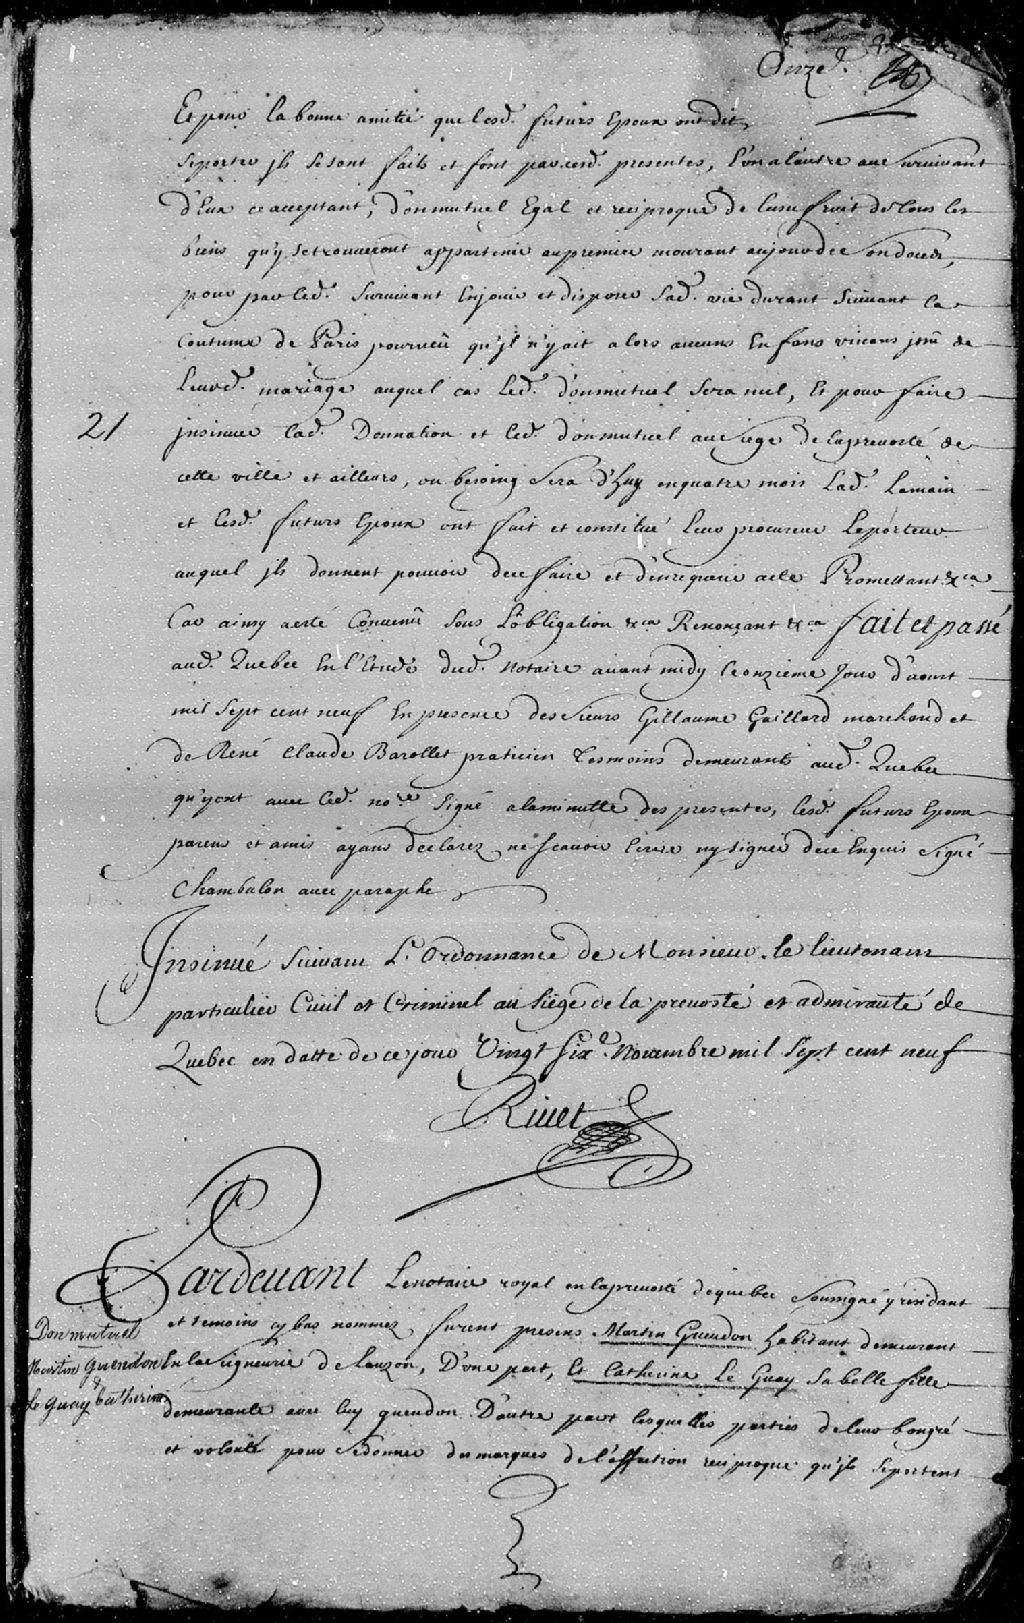 Onze.
Et pour la bonne amitié que lesd. futurs Epoux ont dit
se porter jls se sont faits et font par cesd. presentes, L'un a l'autre au survivant
d'Eux ce acceptant, don mutuel Egal et reciproque de lusufruit de tous les
biens qu'y se trouveront appartenir au premier mourant au jour de son deceds,
pour par led. Survivant En jouir et disposer Sad. vie durant Suivant la
Coutume de Paris pourveu qu'jl n'y ait alors aucuns Enfans vivans jssus de
Leurd. mariage auquel cas Led. don mutuel Sera nul, Et pour faire
21
jnsinuer lad. Donnation et led. don mutuel au siege de la prevosté de
cette ville et ailleurs, ou besoing Sera d'huy en quatre mois Lad. Lemain
et lesd. futurs Epoux ont fait et constitué leur procureur Le porteur
auquel jls donnent pouvoir de ce faire et d'en requerir acte Promettant &ca
Car ainsy a esté Convenu Sous L'obligation &ca Renonçant &ca fait et passé
aud. Quebec En l'Etude dud. Notaire avant midy le onzieme Jour d'aoust
mil Sept cent neuf En presence des Sieurs Gillaume Gaillard marchand et
de René Claude Barollet praticien Tesmoins demeurants aud. Quebec
qu'y ont avec led. nore Signé a la minutte des presentes, lesd. futurs Epoux
parens et amis ayans declarez ne scavoir Ecrire ny signer de ce Enquis Signé
Chambalon avec paraphe
Jnsinué Suivant L'Ordonnance de Monsieur le lieutenant
particulier Civil et Criminel au Siège de la prevosté et admirauté de
Quebec en datte de ce jour Vingt Six.e Novembre mil Sept cent neuf
Rivet
Pardevant Le notaire royal en la prevosté de quebec Sousigné y residant
et temoins cy bas nommez furent presens Martin Guendon habitant demeurant
Don mutuel
Martin Guendon
&
le Guay Catherine
En la Seigneurie de lauzon, D'une part, Et Catherine Le Guay Sa belle fille
demeurante avec luy guendon D'autre part lesquelles parties de leur bon gré
et volonté pour Se donner des marques de l'affection reciproque qu'jls se portent